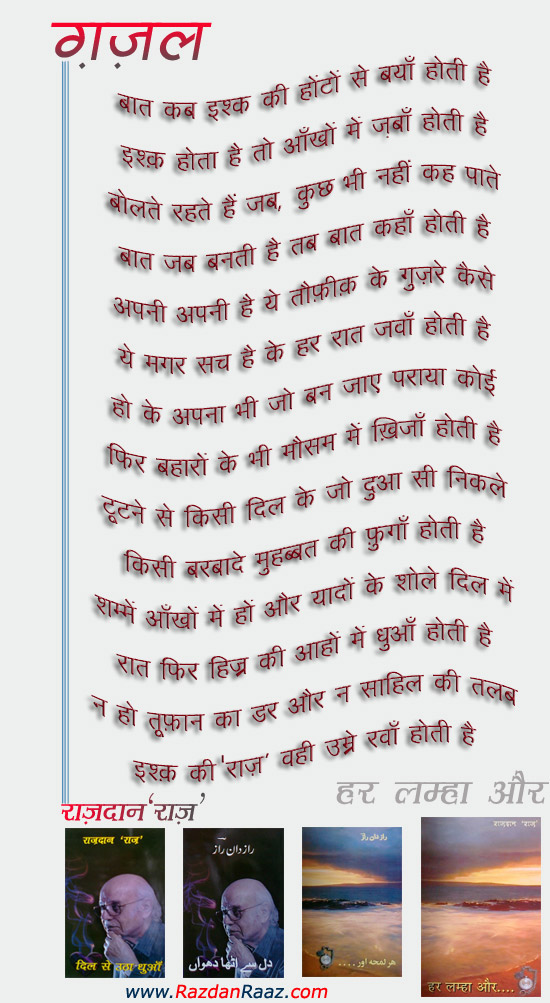 ग़ज़ल
बात कब इश्क़ की होंटों से बयाँ होती है
इश्क़ होता है तो आँखों में ज़बाँ होती है
बोलते रहते हैं जब, कुछ भी नहीं कह पाते
बात जब बनती है तब बात कहाँ होती है
अपनी अपनी है ये तौफ़ीक़ के गुज़रे कैसे
ये मगर सच है के हर रात जवाँ होती है
हो के अपना भी जो बन जाए पराया कोई
फिर बहारों के भी मौसम में ख़िजाँ होती है
टूटने से किसी दिल के जो दुआ सी निकले
किसी बरबादे मुहब्बत की फ़ुगाँ होती है
शम्में आँखों में हों और यादों के शोले दिल में
रात फिर हिज्र की आहों में धुआँ होती है
न हो तूफ़ान का डर और न साहिल की तलब
इश्क़ की 'राज़' वही उम्रे रवाँ होती है
हर लम्हा और
राज़दान 'राज़'
राज़दान 'राज़'
दिल से उठा धुआँ
راز دان راز
دل سے اٹھا دھواں
راز دان راز
ہر لمحہ اور....
राज़दान 'राज़'
हर लम्हा और....
www.RazdanRaaz.com